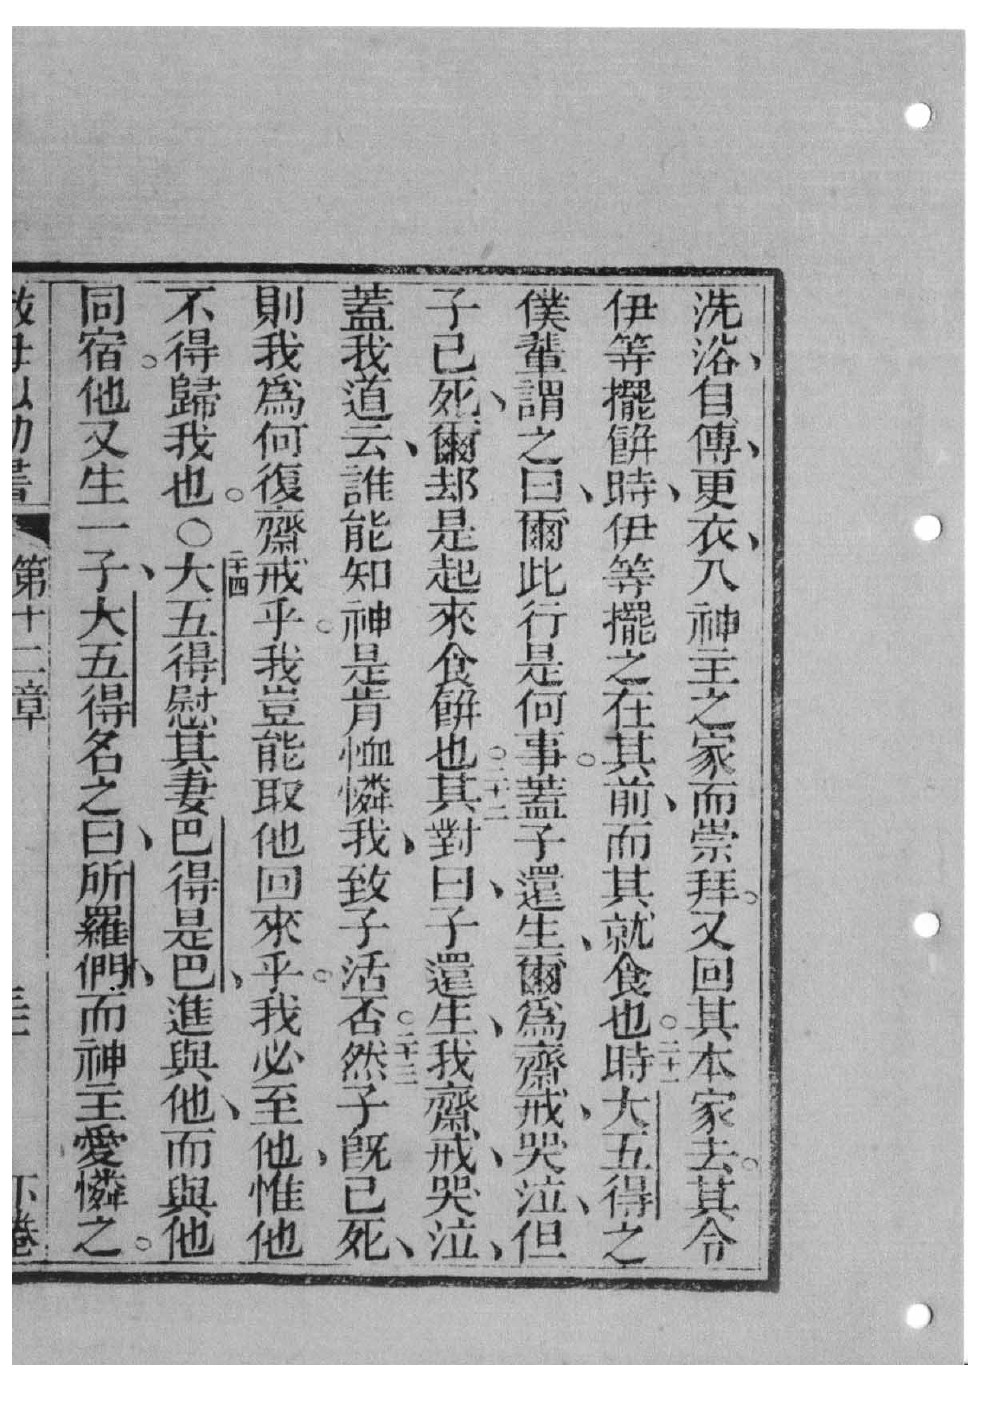 洗浴、自傅、更衣、入神主之家而崇拜。又回其本家去。其令
伊等擺餅時、伊等擺之在其前、而其就食也。二十一時大五得之
僕輩謂之曰、爾此行是何事。蓋子還生、爾爲齋戒、哭泣、但
子已死、爾却是起來食餅也。二十二其對曰、子還生、我齋戒、哭泣、
蓋我道云、誰能知神是肯恤憐我、致子活否。二十三然子旣已死、
則我爲何復齋戒乎。我豈能取他回來乎。我必至他、惟他
不得歸我也。○二十四大五得慰其妻巴得是巴、進與他、而與他
同宿。他又生一子、大五得名之曰、所羅們、而神主愛憐之。
第十二章 下卷